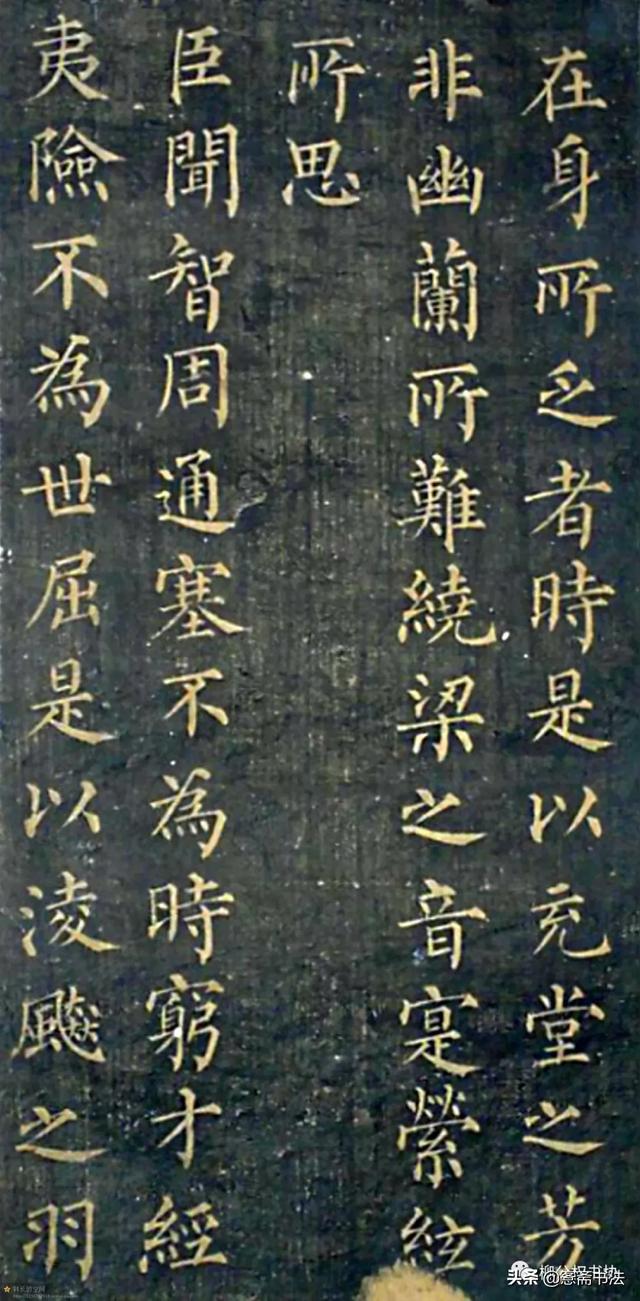 在身所乏者時是以充堂之芳
非幽蘭所難繞梁之音寔縈絃
所思
臣聞智周通塞不為時窮才經
夷險不為世屈是以淩飈之羽
头条 @斋书法